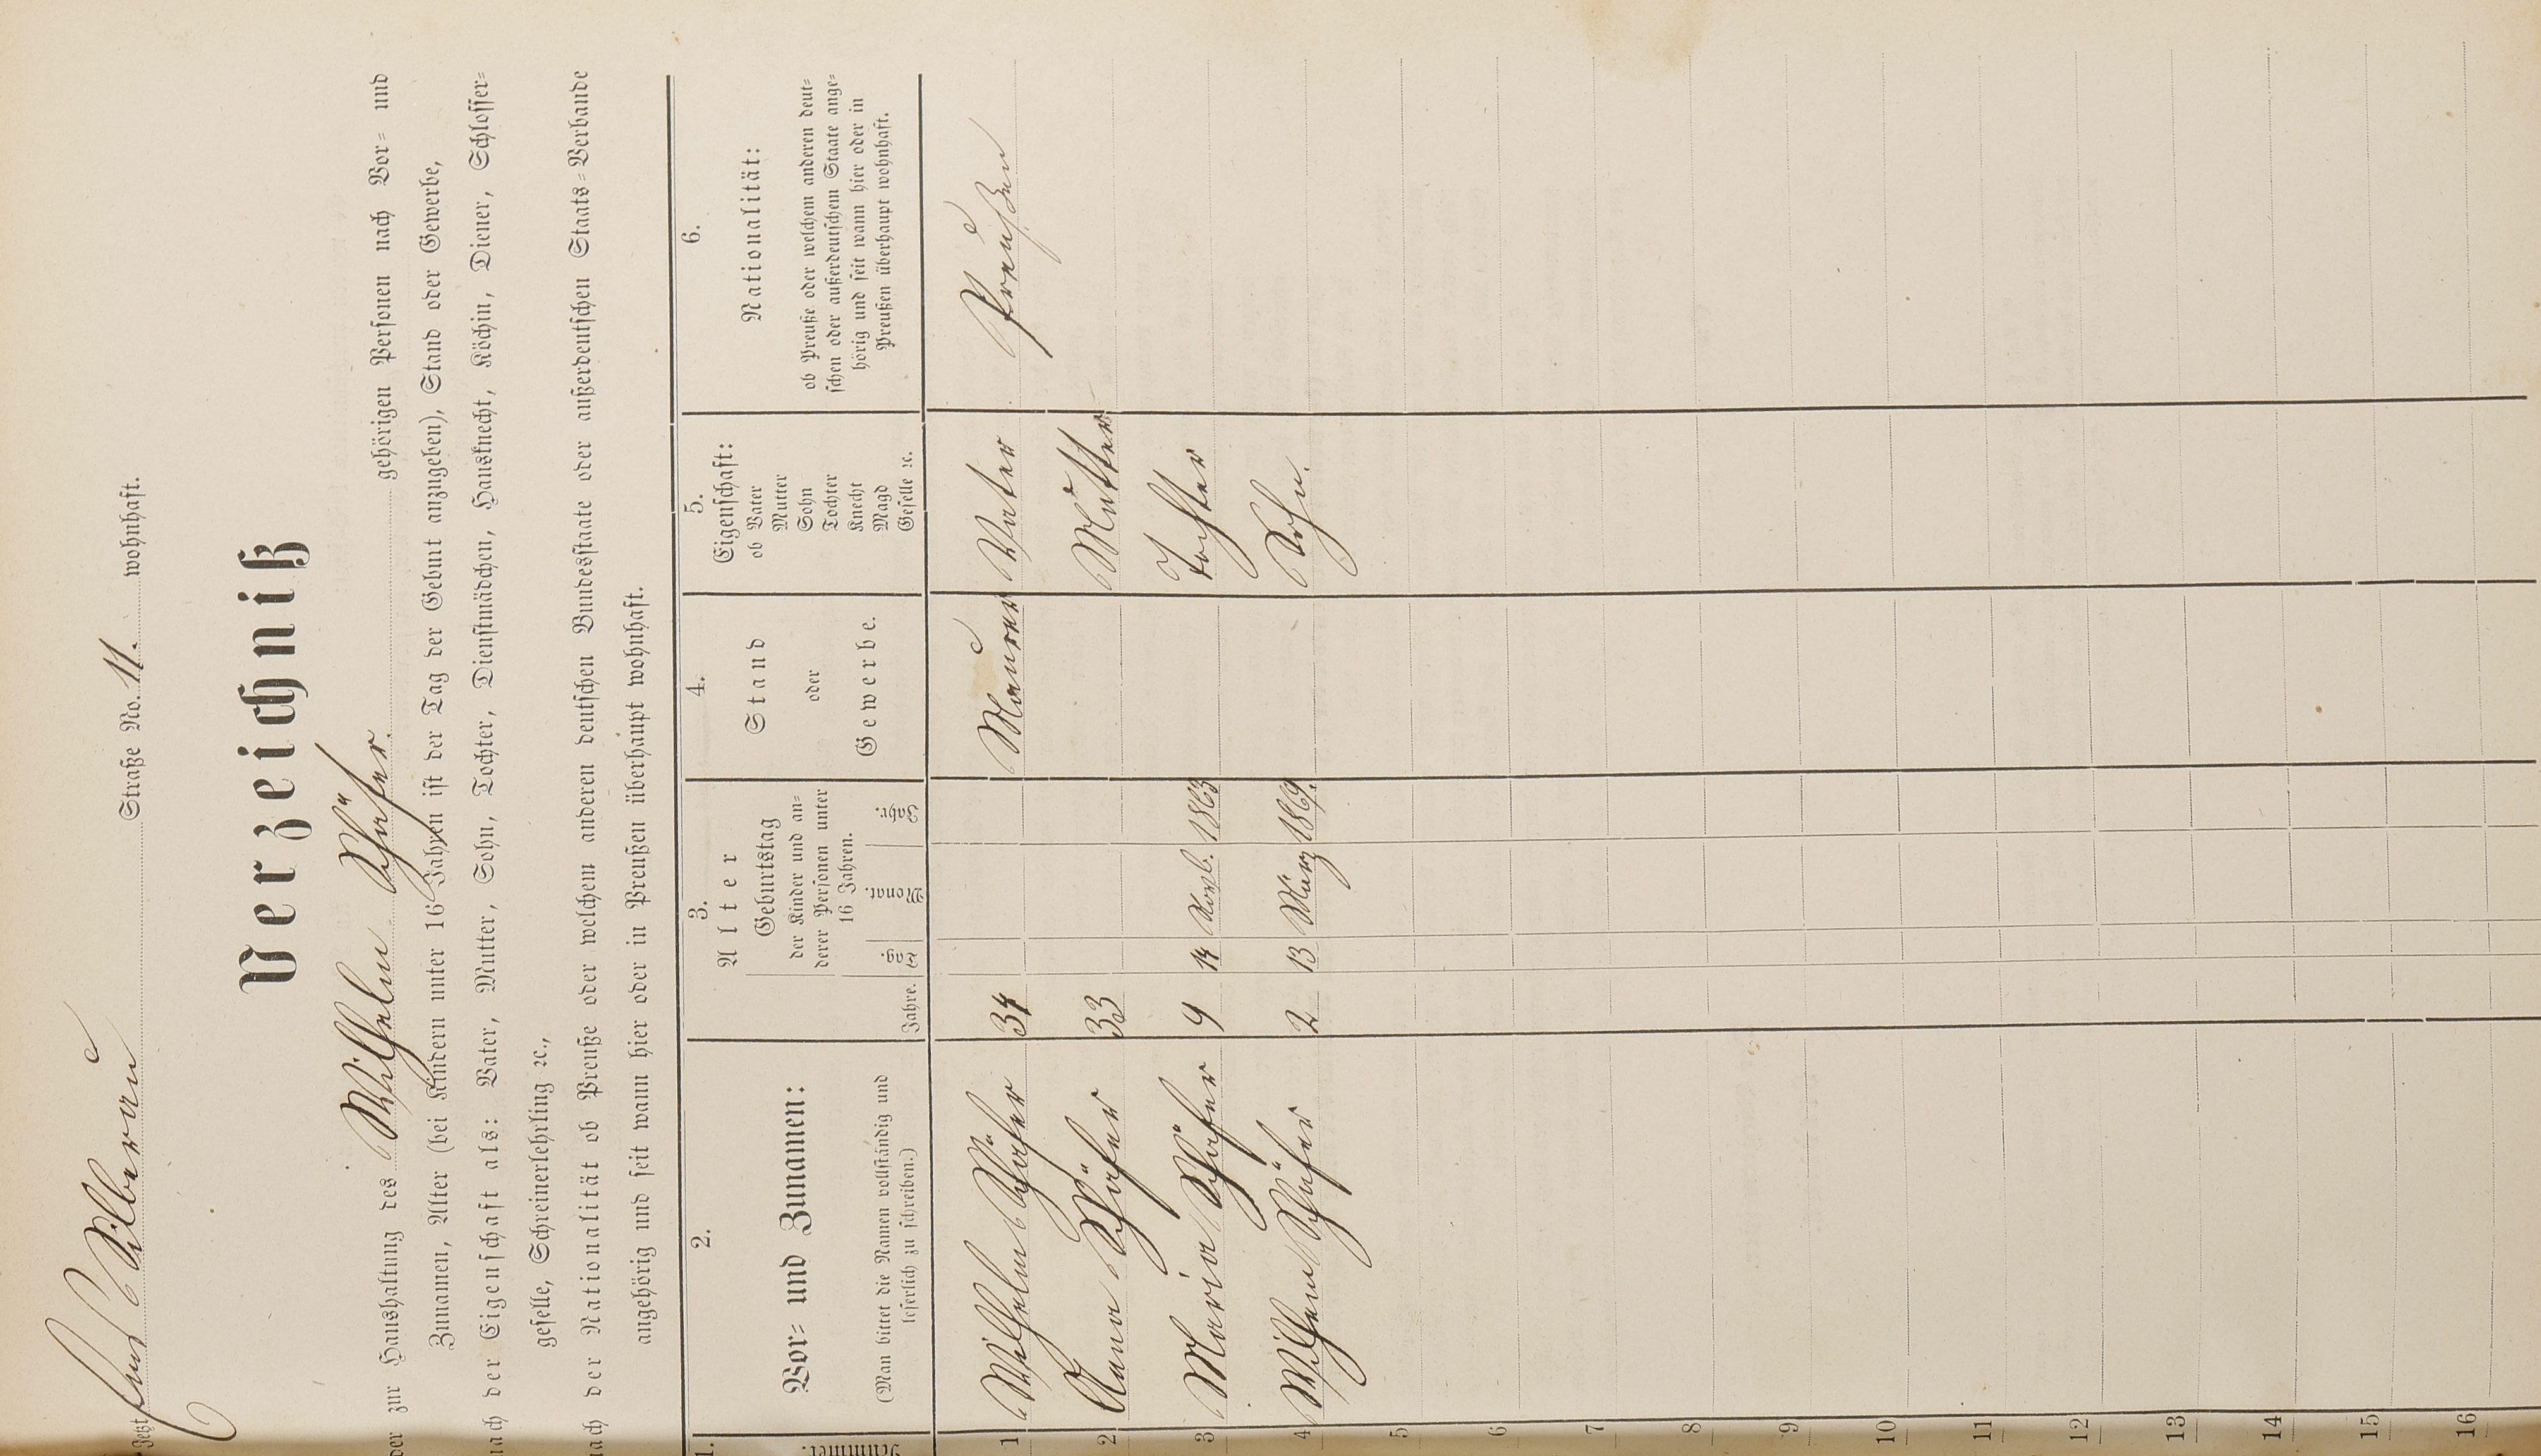 Jetzt Silberau Straße No. 11. wohnhaft.
Verzeichniß
der zur Haushaltung des Wilhelm Schäfer. gehörigen Personen nach Vor- und
Zunamen, Alter (bei Kindern unter 16 Jahren ist der Tag der Geburt anzugeben), Stand oder Gewerbe,
nach der Eigenschaft als: Vater, Mutter, Sohn, Tochter, Dienstmädchen, Hausknecht, Köchin, Diener, Schlosser-
geselle, Schreinerlehrling ꝛc.,
nach der Nationalität ob Preuße oder welchem anderen deutschen Bundesstaate oder außerdeutschen Staats-Verbande
angehörig und seit wann hier oder in Preußen überhaupt wohnhaft.
1. 2. 3. 4. 5. 6.
Nummer. Vor- und Zunamen: Alter Stand oder Gewerbe. Eigenschaft: Nationalität:
(Man bittet die Namen vollständig und
leserlich zu schreiben.)
Jahre.
Geburtstag
der Kinder und an-
derer Personen unter
16 Jahren.
Tag. Monat. Jahr.
ob Vater
Mutter
Sohn
Tochter
Knecht
Magd
Geselle ꝛc.
ob Preuße oder welchem anderen deut-
schen oder außerdeutschen Staate ange-
hörig und seit wann hier oder in
Preußen überhaupt wohnhaft.
1 Wilhelm Schäfer 34 Maurer Vater Preußen
2 Anna Schäfer 33 Mutter
3 Maria Schäfer 9 14 Novb. 1863 Tochter
4 Wilhem Schäfer 2 13 März 1869. Sohn.
5
6
7
8
9
10
11
12
13
14
15
16